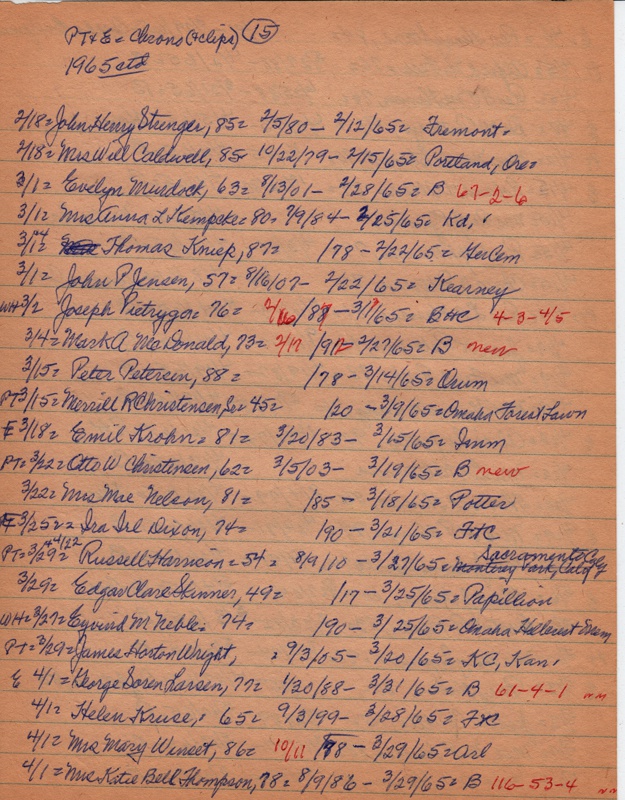 PT & E = Chrons (+ clips) 15
1965 ctd
2/18 = John Henry Stringer, 85 = 2/5/80 - 2/12/65 = Fremont =
2/18 = Mrs Will Caldwell, 85 = 10/22/79 - 2/15/65 = Portland, Ore =
3/1 = Evelyn Murdock, 63 = 8/13/01 - 2/28/65 = B 67-2-6
3/1 = Mrs Anna L Kempcke = 80 = 7/9/84 - 2/25/65 = Kd,
3/1 = Thomas Kniep, 87 = /78 - 2/22/65 = GerCem
3/1 = John P Jensen, 57 = 8/16/07 - 2/22/65 = Kearney
WH 3/2 Joseph Pietryga = 76 = 2/16/87 - 3/1/65 = B HC 4-3-4/5
3/4 = Mark A McDonald, 73 = 2/17 /91 - 2/27/65 = B new
3/15 = Peter Petersen, 88 = /78 - 3/14/65 = Orum
PT 3/15 = Merrill R Christensen, Sr = 45 = /20 - 3/9/65 = Omaha Forest Lawn
E 3/18 = Emil Krohn = 81 = 3/20/83 - 3/15/65 = Imm
PT = 3/22 = Otto W Christensen, 62 = 3/5/03 - 3/19/65 = B new
3/22 = Mrs Mae Nelson, 81 = /85 - 3/18/65 = Potter
E 3/25 = Ira Irl Dixon, 74 = /90 - 3/21/65 = FtC
PT = 3/29 = 4/22 Russell Harrison = 54 = 8/9/10 - 3/27/65 = Sacramento Co, Calif
3/29 = Edgar Clare Skinner, 49 = /17 - 3/25/65 = Papillion
WH = 3/27 = Eyvind M Neble = 74 = /90 - 3/25/65 = Omaha Hillcrest
PT = 3/29 = James Horton Wright, = 9/3/05 - 3/20/65 = KC, Kan.
E 4/1 = George Soren Larsen, 77 = 1/20/88 - 3/31/65 = B 61-4-1 nm
4/1 = Helen Kruse, = 65 = 9/3/99 - 3/28/65 = FtC
4/1 = Mrs Mary Winset, 86 = 10/11 /78 - 3/29/65 = Arl
4/1 = Mrs Katie Bell Thompson, 78 = 8/9/86 - 3/29/65 = B 116-53-4 nm